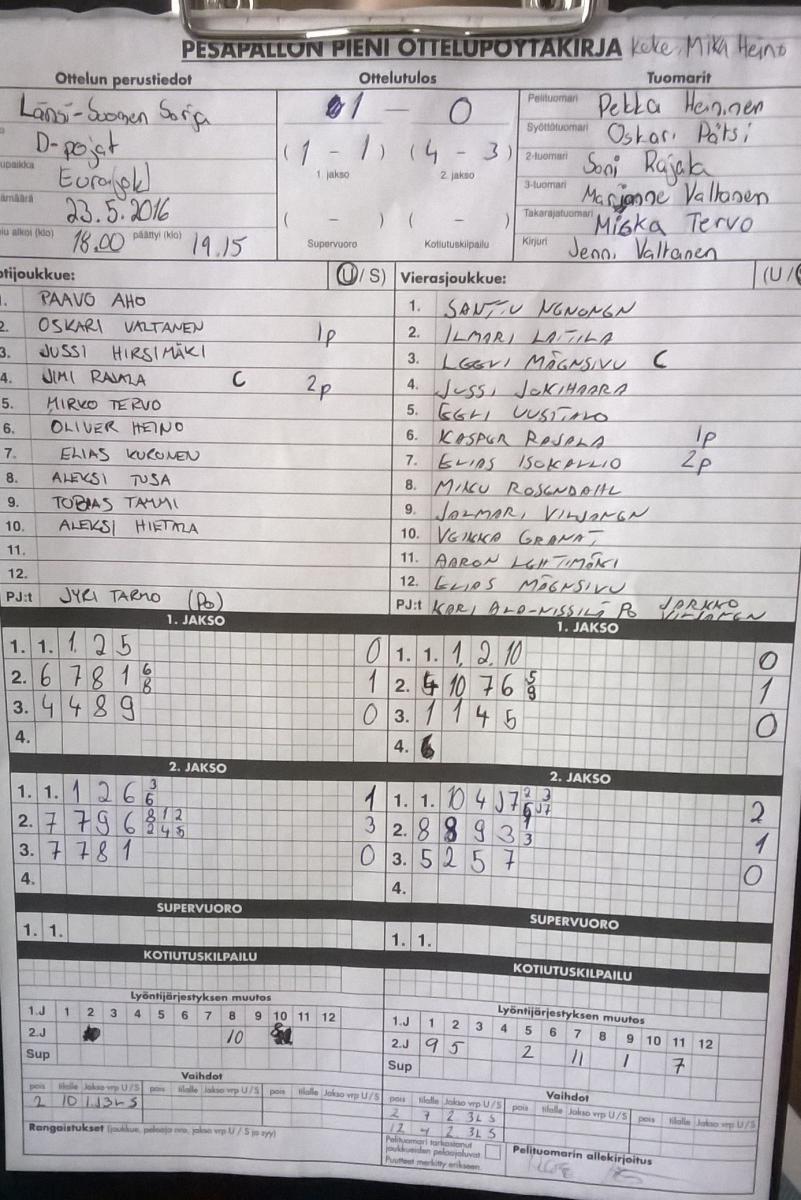 PESÄPALLON PIENI OTTELUPÖYTÄKIRJA Keke, Mika Heino
Ottelun perustiedot Ottelutulos Tuomarit
Länsi-Suomen Sarja
D-pojat
upaikka
ämäärä 23.5.2016
alkoi (klo) 18.00 päättyi (klo) 19.15
1 – 0
(1 – 1) (4 – 3)
1. jakso 2. jakso
( – ) ( – )
Supervuoro Kotiutuskilpailu
Pelituomari Pekka Heininen
Syöttötuomari Oskari
2-tuomari Soni Rajala
3-tuomari Marjanne Valtanen
Takarajatuomari Miska Tervo
Kirjuri Jenni Valtanen
tijoukkue: (U/S)
1. PAAVO AHO
2. OSKARI VALTANEN 1p
3. JUSSI HIRSIMÄKI
4. JIMI RAJALA C 2p
5. MIRKO TERVO
6. OLIVER HEINO
7. ELIAS KURONEN
8. ALEKSI TUSA
9. TOBIAS TAMMI
10. ALEKSI HIETALA
11.
12.
PJ:t JYRI TARMO (Po)
Vierasjoukkue: (U/
1. SANTTU
2. ILMARI LAITILA
3. LEEVI MÄENSIVU C
4. JUSSI JOKIHAARA
5. EELI UUSITALO
6. KASPER RAJALA 1p
7. ELIAS ISOKALLIO 2p
8. MIKU ROSENDAHL
9. JALMARI VILJANEN
10. VEIKKA GRANAT
11. AARON LEHTIMÄKI
12. ELIAS MÄENSIVU
PJ:t KARI ALA-NISSILÄ Po JARKKO VILJANEN
1. JAKSO
1. 1. 1. 2 5 0
2. 6 7 8 1 6 8 1
3. 4 4 8 9 0
4.
1. JAKSO
1. 1. 1. 2. 10 0
2. 4 10 7 6 5 9 1
3. 1 1 4 5 0
4.
2. JAKSO
1. 1. 1 2 6 3 6 1
2. 7 7 9 6 8 1 2 2 4 5 3
3. 7 7 8 1 0
4.
2. JAKSO
1. 1. 10 4 J7 2 3 6 J7 2
2. 8 8 9 3 1 3 1
3. 5 2 5 7 0
4.
SUPERVUORO
1. 1.
SUPERVUORO
1. 1.
KOTIUTUSKILPAILU
KOTIUTUSKILPAILU
Lyöntijärjestyksen muutos
1.J 1 2 3 4 5 6 7 8 9 10 11 12
2.J 10
Sup
Lyöntijärjestyksen muutos
1.J 1 2 3 4 5 6 7 8 9 10 11 12
2.J 9 5 2 11 1 7
Sup
Vaihdot
pois tilalle Jakso vrp U/S pois tilalle Jakso vrp U/S pois tilalle Jakso vrp U/S
2 10 1.J 3L S
Rangaistukset (joukkue, pelaaja nro, jakso vrp U/S ja syy)
Vaihdot
pois tilalle Jakso vrp U/S pois tilalle Jakso vrp U/S pois tilalle Jakso vrp U/S
2 7 2 3L S
12 4 2 3L S
Pelituomari tarkastanut
joukkueiden pelaajaluvat
Puutteet merkitty erikseen.
Pelituomarin allekirjoitus